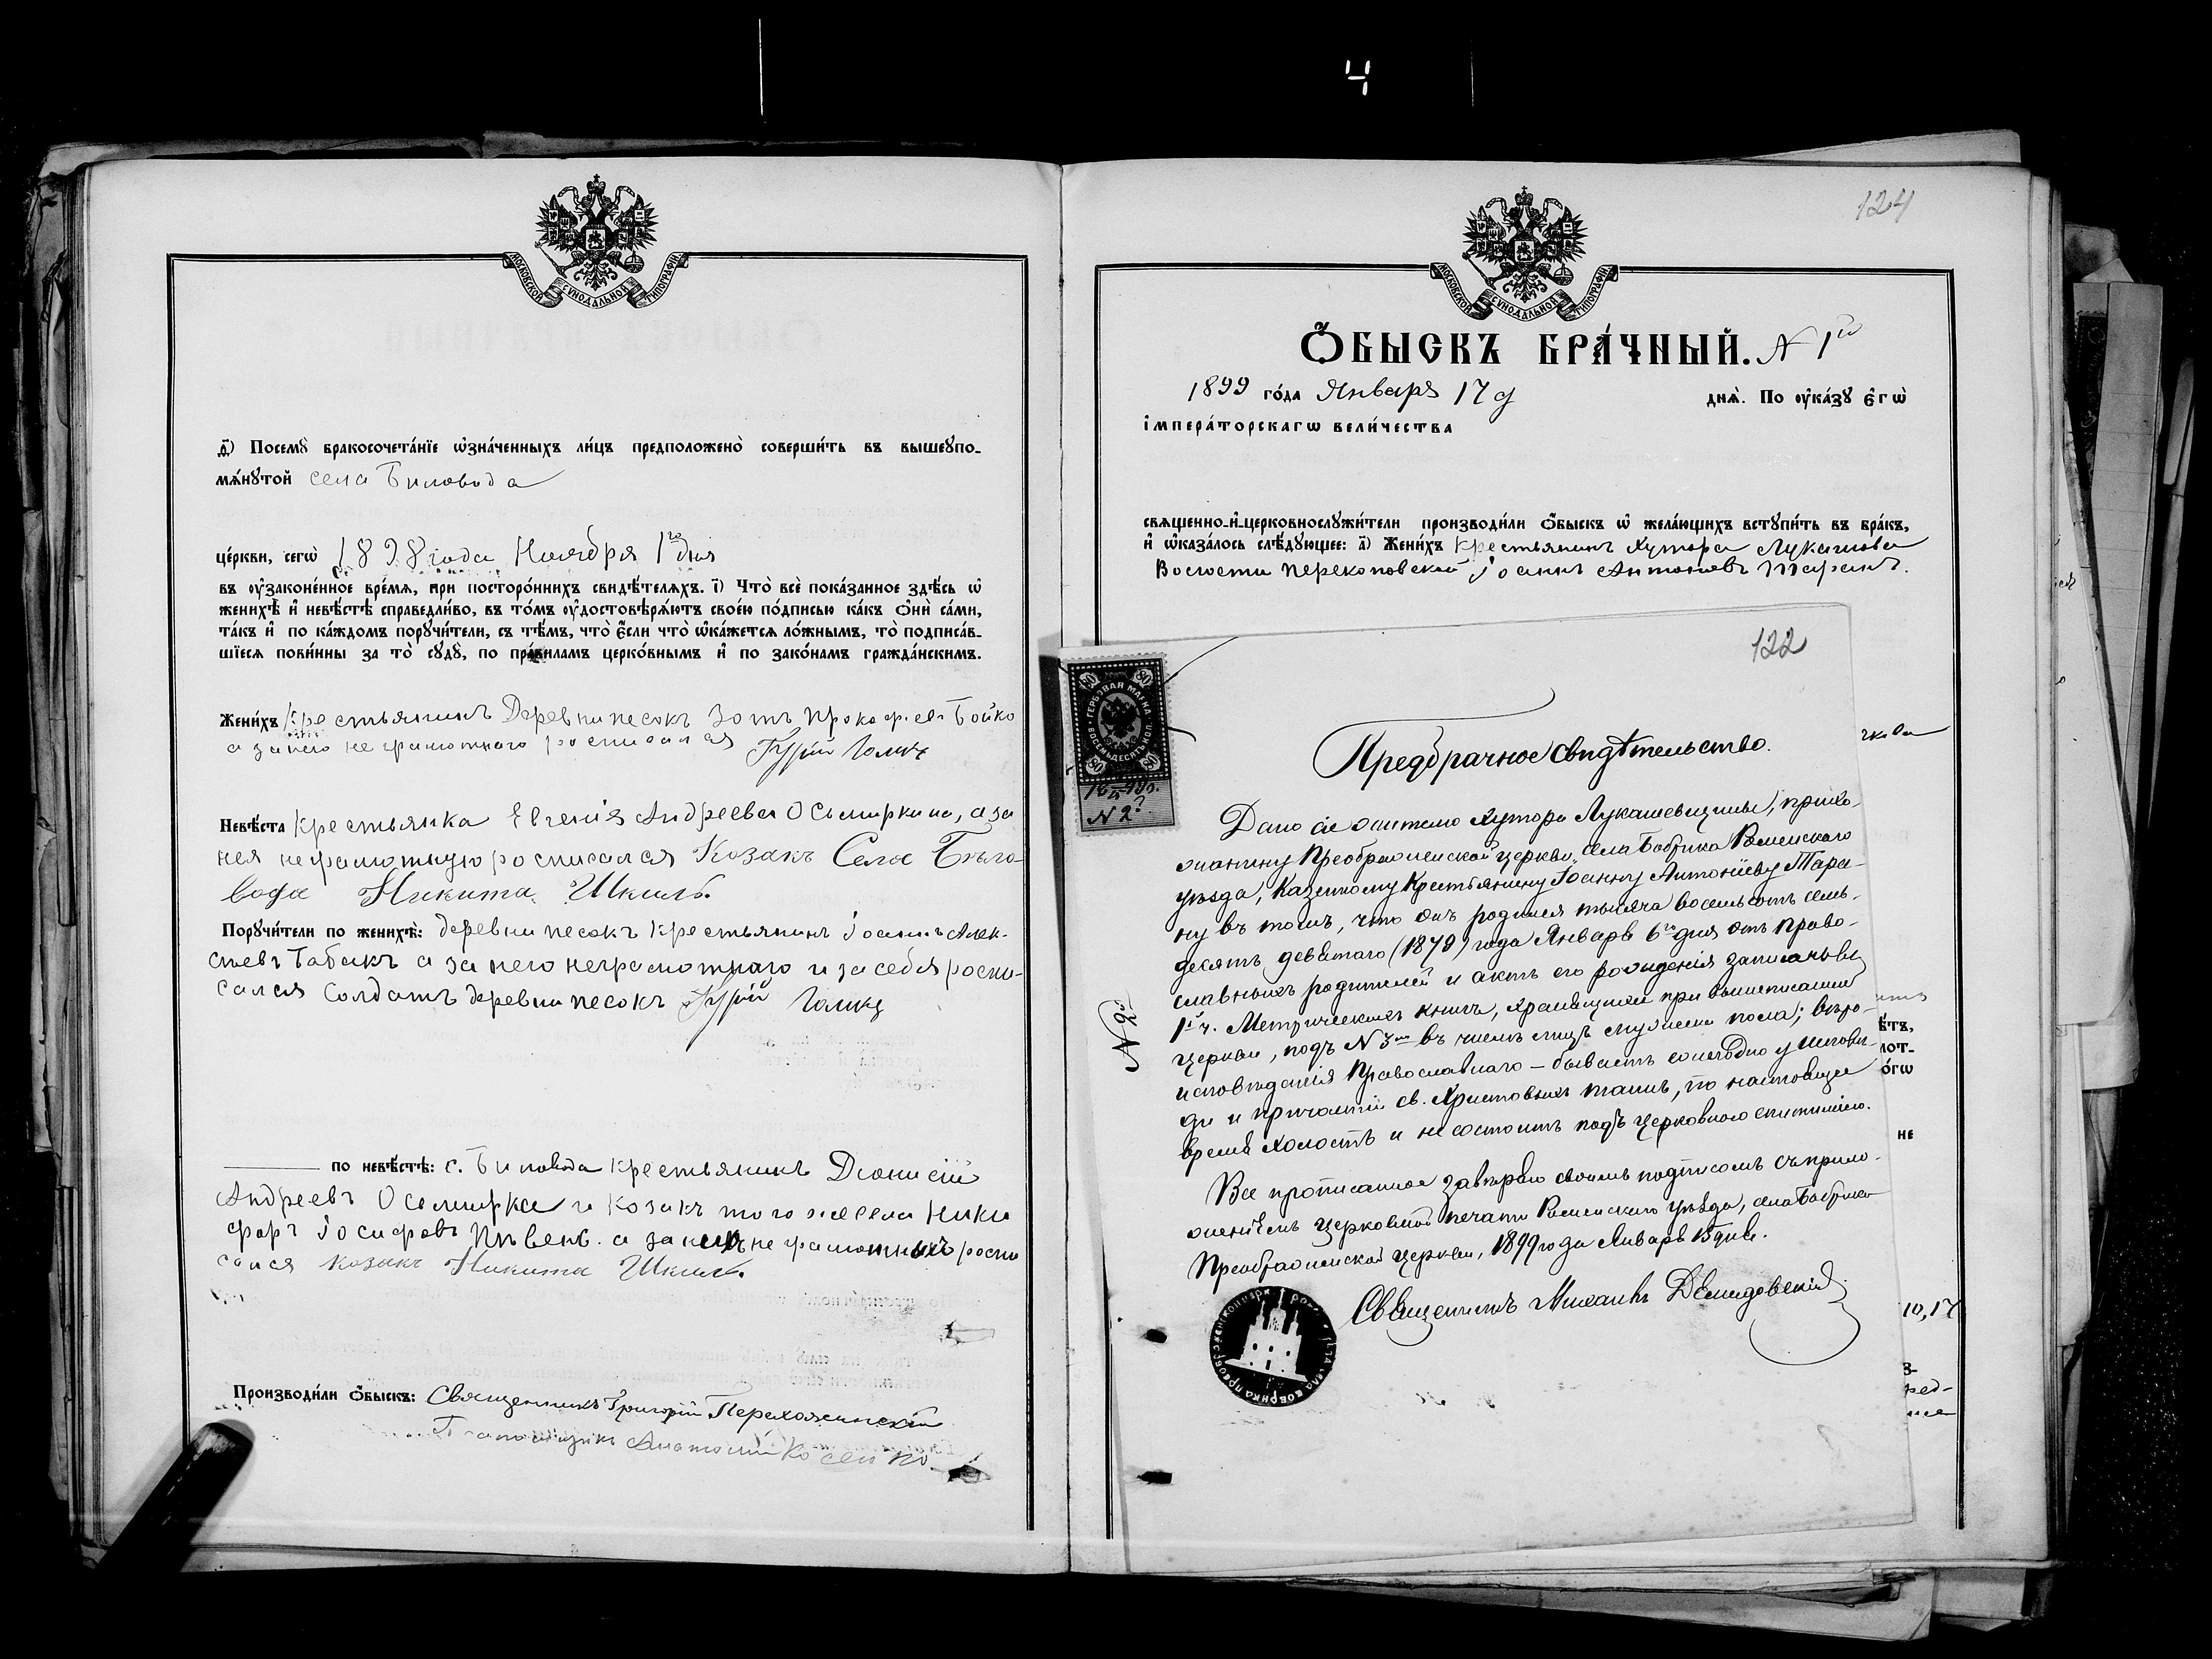 4
МОСКОВСКОЙ СѴНОДАЛЬНОЙ ТИПОГРАФІИ
д҃) Посемꙋ бракосочета́нїе ѡзна́ченныхъ ли́цъ предположено̀ соверши́ть въ вышеꙋпо-
мѧ́нꙋтой села Биловода
це́ркви, сегѡ̀ 1898 года Ноября 1го дня
въ ᲂу҆законе́нное вре́мѧ, при посторо́ннихъ свидѣ́телѧхъ. і҃) Что̀ всѐ пока́занное здѣ́сь ѡ҆
женихѣ̀ и҆ невѣ́стѣ справедли́во, въ то́мъ ᲂу҆достовѣрѧ́ютъ свое́ю по́дписью ка́къ ѻ҆нѝ са́ми,
та́къ и҆ по ка́ждомъ порꙋчи́тели, съ тѣ́мъ, что̀ є҆́сли что̀ ѡ҆ка́жетсѧ ло́жнымъ, то̀ подписа́в-
шїесѧ пови́нны за то̀ сꙋдꙋ̀, по пра́виламъ церко́внымъ и҆ по зако́намъ гражда́нскимъ.
Жени́хъ Крестьянинъ Деревни песокъ Зотъ Прокофіевъ Бойко
а за него неграмотного росписался Гурій
Невѣ́ста Крестьянка Евгенія Андреева Осьмиркина, а за
нея неграмотную росписался Козакъ Села Бѣло-
вода Никита Шкиль.
Порꙋчи́тели по женихѣ̀: деревни песокъ Крестьянинъ Іоаннъ Алек-
сѣевъ Табакъ а за него неграмотнаго и за себя роспи-
сался Солдатъ деревни песокъ Гурій
по невѣ́стѣ: с. Биловода Крестьянинъ Діонисій
Андреевъ Осьмирка и козакъ того же села Ники
форъ Іосифовъ Пивень. а за нихъ неграмотныхъ роспи
сался козакъ Никита Шкиль.
Производи́ли ѻ҆́быскъ: Священникъ Григорій
Псаломщикъ Анатолій Косенко
124
МОСКОВСКОЙ СѴНОДАЛЬНОЙ ТИПОГРАФІИ
Ѻ҆́БЫСКЪ БРА́ЧНЫЙ. N 1й
1899 го́да Января 17 д днѧ̀. По ᲂу҆ка́зꙋ є҆гѡ̀
і҆мпера́торскагѡ вели́чества
свѧще́нно-и҆-церковнослꙋжи́тели производи́ли ѻ҆́быскъ ѡ҆ жела́ющихъ встꙋпи́ть въ бра́къ,
и҆ ѡ҆каза́лось слѣ́дꙋющее: а҃) Жени́хъ Крестьянинъ Хутора Лукашова
Волости Перекоповской Іоаннъ Антоновъ Таранъ.
122
ГЕРБОВАЯ МАРКА
ВОСЕМЬДЕСЯТЪ КОП.
80 80 80 80
N 2
Предбрачное свидѣтельство.
Дано сіе жителю Хутора Лукашевщины, прихо-
жанину Преображенской церкви, села Бобрика Роменского
уѣзда, Казенному Крестьянину Іоанну Антоніеву Тара-
ну въ томъ, что онъ родился тысяча восемьсотъ семь-
десятъ девятаго (1879) года Января 6го дня отъ право-
славныхъ родителей и актъ его рожденія записанъ въ
1й ч. Метрическихъ книгъ, хранящихся при вышеписанной
церкви, подъ N 3мъ въ числѣ лицъ мужеска пола; вѣро-
исповѣданія Православнаго – бываетъ ежегодно у испові-
ди и причастіи св. Христовыхъ таинъ, по настоящее
время холостъ и не состоитъ подъ церковною епитиміею.
Все прописанное завѣряю своимъ подписомъ съ прило-
женіемъ церковной печати Роменскаго уѣзда, села Бобрика
Преображенской церкви, 1899 года Января 15 дня.
Священникъ Михаилъ Демидовскій
N 2
ѣ́тъ,
лот-
о́гѡ
не
10, 17